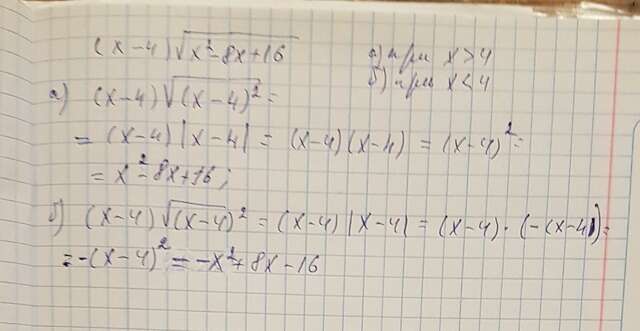 (x-4)√(x²-8x+16) а) при x>4
б) при x<4
а) (x-4)√((x-4)²) =
= (x-4)|x-4| = (x-4)(x-4) = (x-4)² =
= x²-8x+16;
б) (x-4)√((x-4)²) = (x-4)|x-4| = (x-4)·(-(x-4)) =
= -(x-4)² = -x²+8x-16